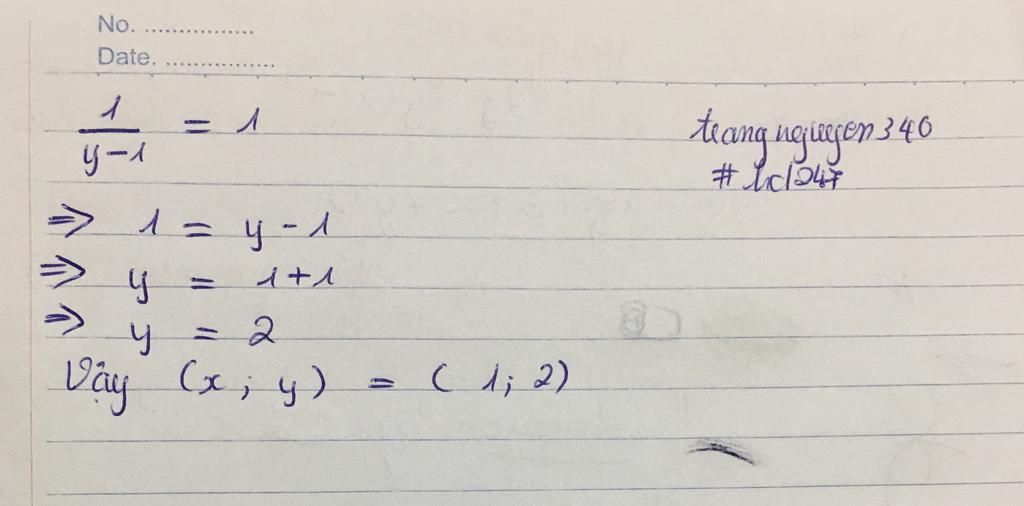 No. ................
Date. ................
1/(y-1) = 1
trangnguyen340
# hd247
=> 1 = y - 1
=> y = 1 + 1
=> y = 2
Vậy (x ; y) = (1; 2)